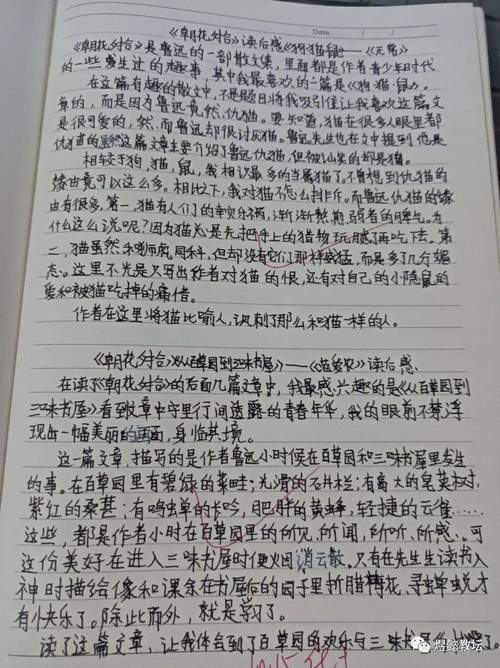 《朝花夕拾》读后感《狗·猫·鼠》——《无常》
Date / /
《朝花夕拾》是鲁迅的一部散文集,里面都是作者青少年时代
的一些发生过的趣事,其中我最喜欢的一篇是《狗·猫·鼠》。
在这篇有趣的散文中,不是题目将我吸引住让我喜欢这篇文
章的,而是因为鲁迅竟然仇猫。要知道,猫在很多人眼里都
是很可爱的,然而鲁迅却很讨厌猫。鲁迅先生也在文中提到他是
仇猫的。这篇文章主要介绍了鲁迅仇猫,但被讥笑的却是猫。
相较于狗,猫,鼠,我相识最多的当属猫了。不曾想到仇猫的
缘由竟可以这么多。相比之下,我对猫不怎么排斥。而鲁迅仇猫的缘
由有很多,第一,猫有人们的幸灾乐祸,渐渐折磨弱者的脾气。为
什么这么说呢?因为猫总是先把手上的猎物玩腻了再吃下去。第
二,猫虽然和狮虎同科,但却没有它们那样威猛,而是多了几分媚
态。这里不光是只写出作者对猫的恨,还有对自己的小隐鼠的
爱和被猫吃掉的痛惜。
作者在这里将猫比喻人,讽刺了那么和猫一样的人。
《朝花夕拾》《从百草园到三味书屋》——《范爱农》读后感
在读了《朝花夕拾》的后面几篇文章中,我最感兴趣的是《从百草园到
三味书屋》看到文章中字里行间透露的青春年华,我的眼前不禁浮
现出一幅美丽的画面,身临其境。
这一篇文章,描写的是作者鲁迅小时候在百草园和三味书屋里发生
的事。在百草园里有碧绿的菜畦;光滑的石井栏;有高大的皂荚树,
紫红的桑葚;有鸣虫草的长吟,肥胖的黄蜂,轻捷的云雀……
这些,都是作者小时在百草园里的所见,所闻,所听,所感。可
这份美好在进入三味书屋时便火因消云散。只有在先生读书入
神时描绘像和课余在书屋后的园子里折腊梅花,寻蝉蜕才
有小快乐了。除此而外,就是学习了。
读了这篇文章,让我体会到了百草园的欢乐与三味书屋
煜懿教坛